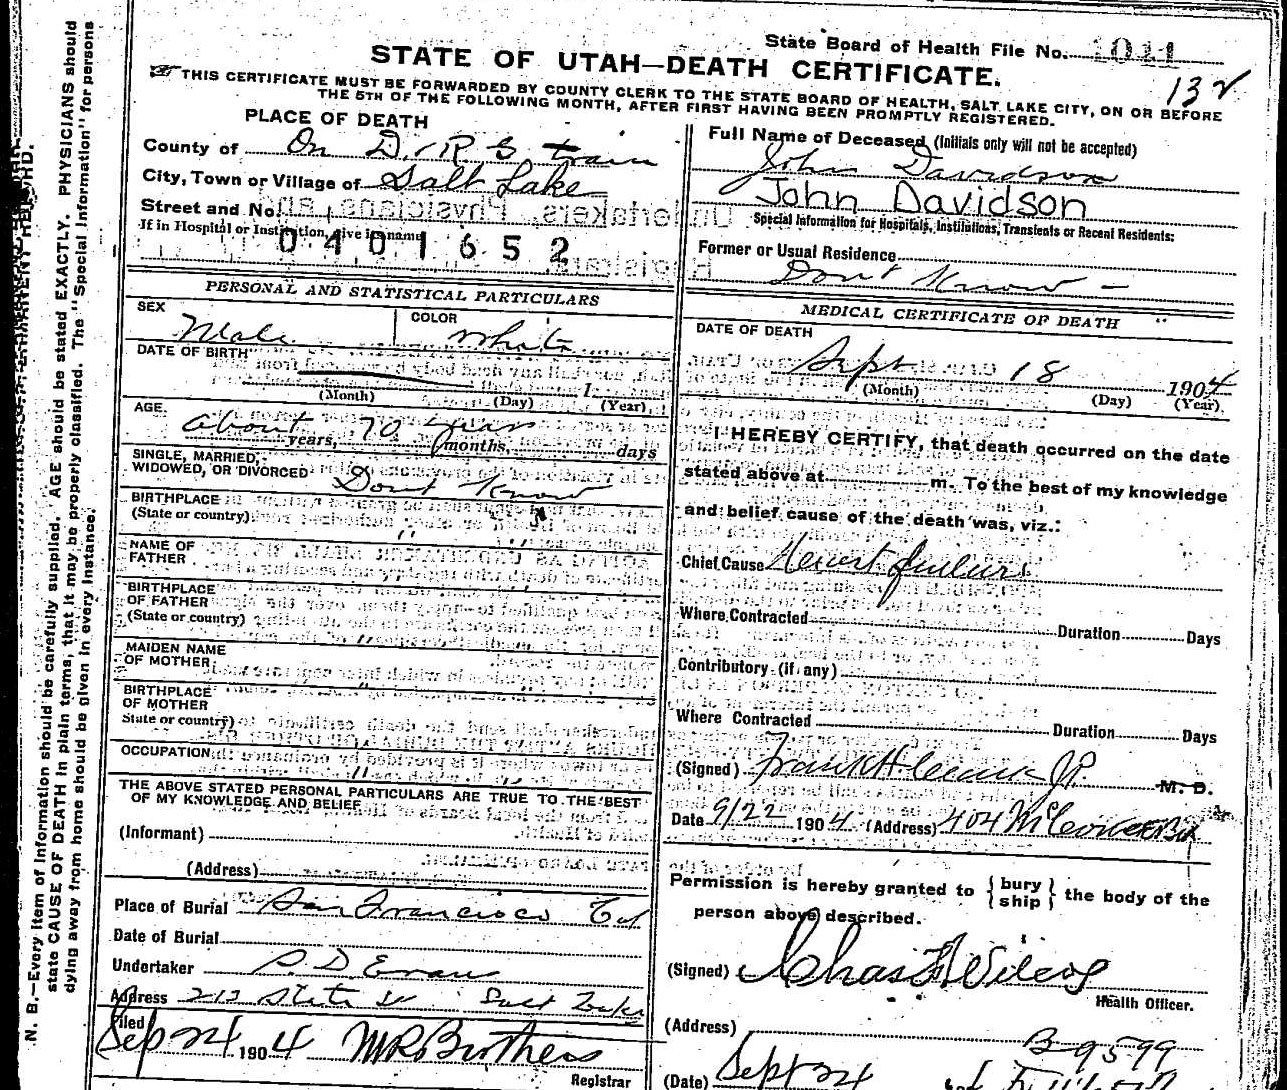 State Board of Health File No. 1041
132
STATE OF UTAH—DEATH CERTIFICATE.
THIS CERTIFICATE MUST BE FORWARDED BY COUNTY CLERK TO THE STATE BOARD OF HEALTH, SALT LAKE CITY, ON OR BEFORE
THE 5TH OF THE FOLLOWING MONTH, AFTER FIRST HAVING BEEN PROMPTLY REGISTERED.
PLACE OF DEATH
County of On D. & R G train
City, Town or Village of Salt Lake
Street and No.
If in Hospital or Institution, give its name
0401652
PERSONAL AND STATISTICAL PARTICULARS
SEX Male
COLOR White
DATE OF BIRTH
1
(Month) (Day) (Year)
AGE.
about 70 years
years, months, days
SINGLE, MARRIED,
WIDOWED, OR DIVORCED Dont Know
BIRTHPLACE "
(State or country)
NAME OF
FATHER
BIRTHPLACE
OF FATHER
(State or country)
MAIDEN NAME
OF MOTHER
BIRTHPLACE
OF MOTHER
State or country)
OCCUPATION "
THE ABOVE STATED PERSONAL PARTICULARS ARE TRUE TO THE BEST
OF MY KNOWLEDGE AND BELIEF
(Informant)
(Address)
Place of Burial San Francisco Cal
Date of Burial
Undertaker S. D Evans
Address 213 State St Salt Lake
Filed
Sep 24 1904 M R Brothers
Registrar
Full Name of Deceased (Initials only will not be accepted)
John Davidson
John Davidson
Special Information for Hospitals, Institutions, Transients or Recent Residents:
Former or Usual Residence
Dont Know —
MEDICAL CERTIFICATE OF DEATH
DATE OF DEATH
Sept 18 1904
(Month) (Day) (Year)
I HEREBY CERTIFY, that death occurred on the date
stated above at m. To the best of my knowledge
and belief cause of the death was, viz.:
Chief Cause Heart failure
Where Contracted Duration Days
Contributory (if any)
Where Contracted Duration Days
(Signed) Frank H Clark J.P. M. D.
Date 9/22 1904 (Address) 404 McCornick Bk
Permission is hereby granted to { bury ship } the body of the
person above described.
(Signed) Chas F Wilcox
Health Officer.
(Address)
B 9599
(Date) Sept 24
N. B.—Every item of Information should be carefully supplied. AGE should be stated EXACTLY. PHYSICIANS should
state CAUSE OF DEATH in plain terms, that it may be properly classified. The "Special Information" for persons
dying away from home should be given in every instance.